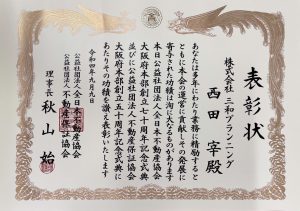 表彰状
株式会社 三和プランニング
西田 宰殿
あなたは多年にわたり業務に精励すると
ともに本会の運営に貢献しその発展に
寄与された功績は洵に大なるものがあります
本日公益社団法人全日本不動産協会
大阪府本部創立七十周年記念式典
並びに公益社団法人不動産保証協会
大阪府本部創立五十周年記念式典に
あたりその功績を讃え表彰いたします
令和四年九月九日
公益社団法人全日本不動産協会
公益社団法人不動産保証協会
理事長 秋山 始